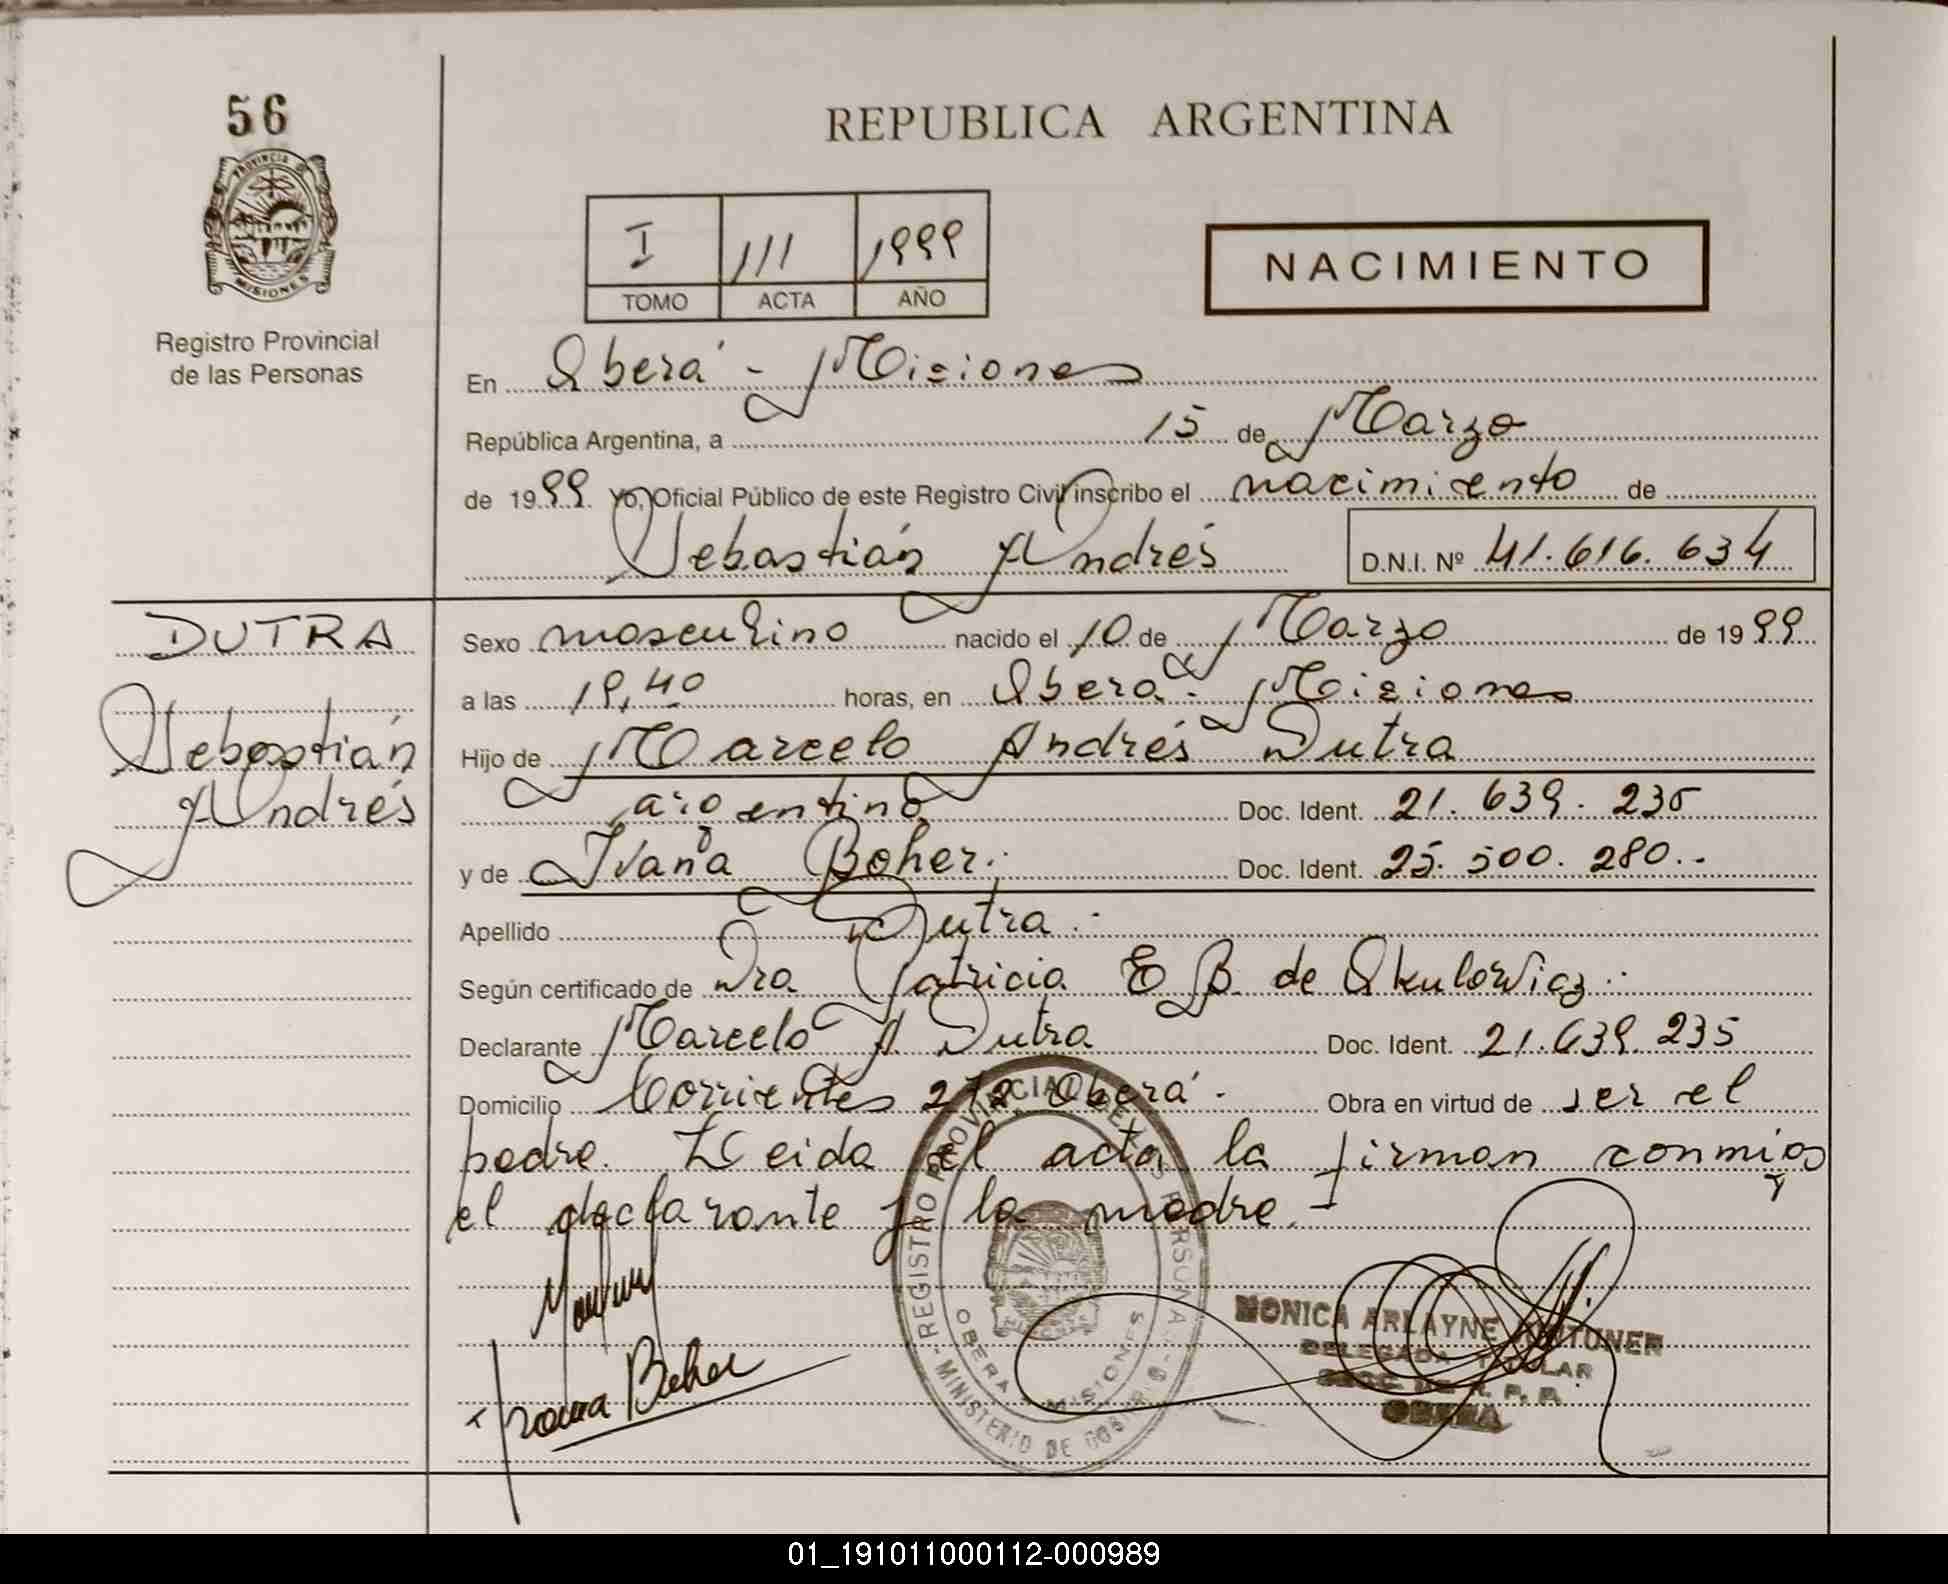 56
PROVINCIA DE
MISIONES
Registro Provincial
de las Personas
REPUBLICA ARGENTINA
I 111 1999
TOMO ACTA AÑO
NACIMIENTO
En Oberá - Misiones
República Argentina, a 15 de Marzo
de 1999. Yo, Oficial Público de este Registro Civil inscribo el nacimiento de
Sebastián Andrés
D.N.I. Nº 41.616.634
DUTRA
Sebastián
Andrés
Sexo masculino nacido el 10 de Marzo de 1999
a las 19,40 horas, en Oberá - Misiones
Hijo de Marcelo Andrés Dutra
argentino Doc. Ident. 21.639.235
y de Ivana Boher. Doc. Ident. 25.500.280.-
Apellido Dutra.
Según certificado de Dra Patricia E B. de Skulowicz.
Declarante Marcelo A. Dutra Doc. Ident. 21.639.235
Domicilio Corrientes 272 Oberá. Obra en virtud de ser el
padre. Leida el acta la firman conmigo
el declarante y la madre.-
Ivana Boher
REGISTRO PROVINCIAL DE LAS PERSONAS
MINISTERIO DE GOBIERNO
OBERA MISIONES
MONICA ARLAYNE
DELEGADA TITULAR
R. P. P.
OBERA
01_191011000112-000989